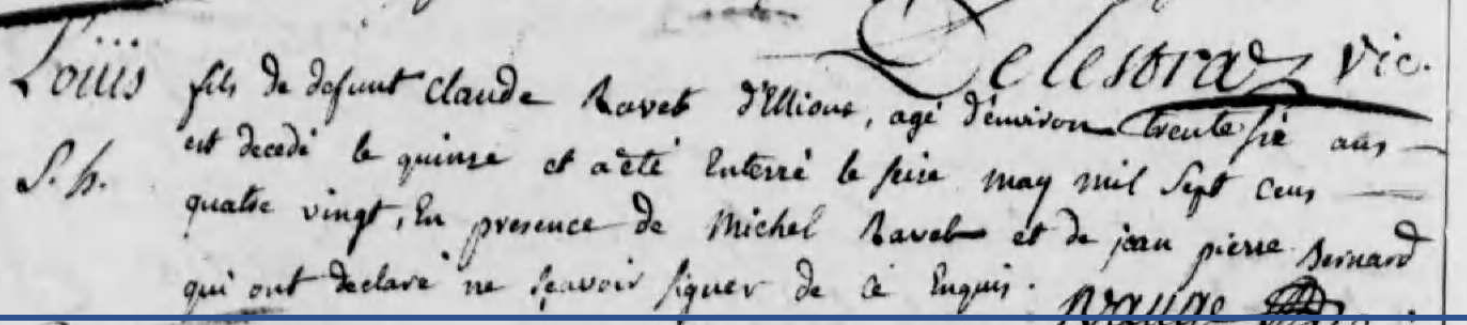 Delestraz vic.
Loüis fils de defunt Claude Ravet d'Ellious, agé d'émiron trente sié ans
S. h. est decedé le quinze et a èté Enterré le seise may mil sept cens
quatre vingt, En presence de Michel Ravet et de jean pierre Bernard
qui ont declaré ne sçavoir signer de ce Enquis.